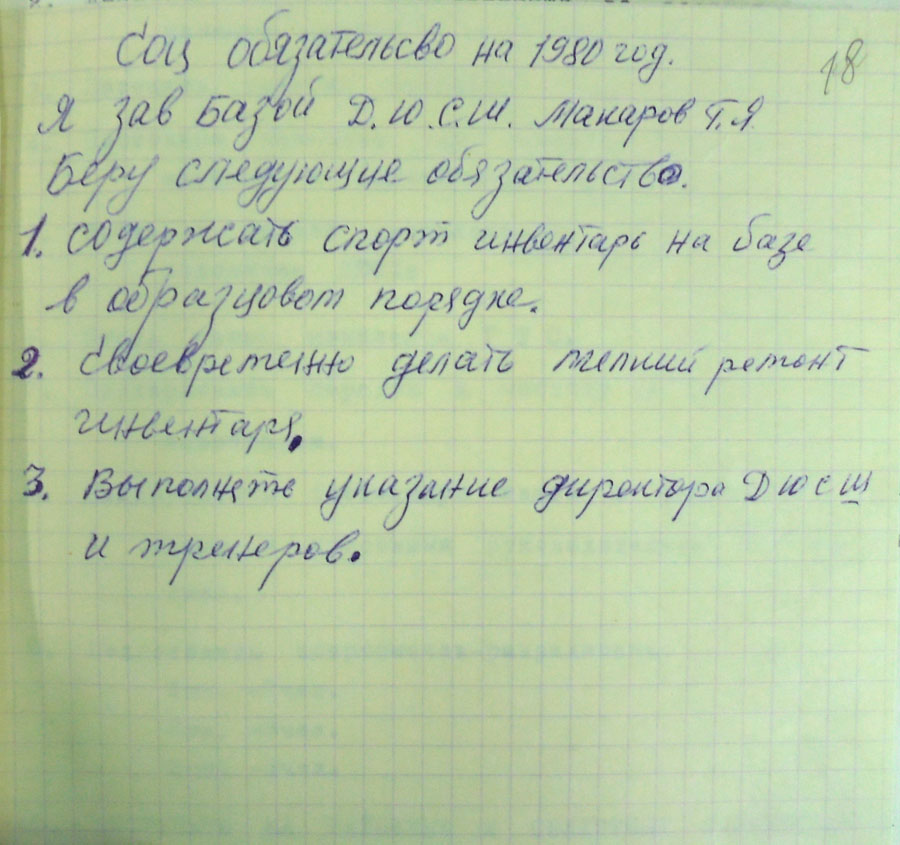 Соц обязательсво на 1980 год.
18
Я зав базой Д.Ю.С.Ш. Макаров Г.Я.
Беру следующие обязательство.
1. Содержать спорт инвентарь на базе
в образцовом порядке.
2. Своевременно делать мелкий ремонт
инвентаря.
3. Выполнять указание директора ДЮСШ
и тренеров.